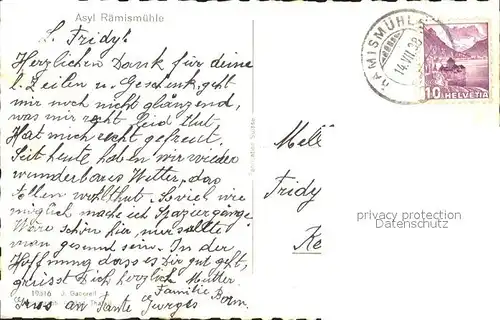 Asyl Rämismühle
L. Fridy!
Herzlichen Dank für deine
l. Zeilen u. Geschenk, geht
mir noch nicht glänzend,
was mir recht Leid thut.
Hat mich recht gefreut.
Seit heute haben wir wieder
wunderbares Wetter, das
Allen wohlthut. Soviel wie
möglich mache ich Spaziergänge
Wäre schön hir, nur sollte
man gesund sein. In der
Hoffnung dass es Dir gut geht,
grüsst Dich herzlich Mutter.
Familie Born.
Gruss an Tante
19816 J. Gaberell
RÄMISMÜHLE
14.VII.38
10 HELVETIA
Mell
Fridy
privacy protection
Datenschutz